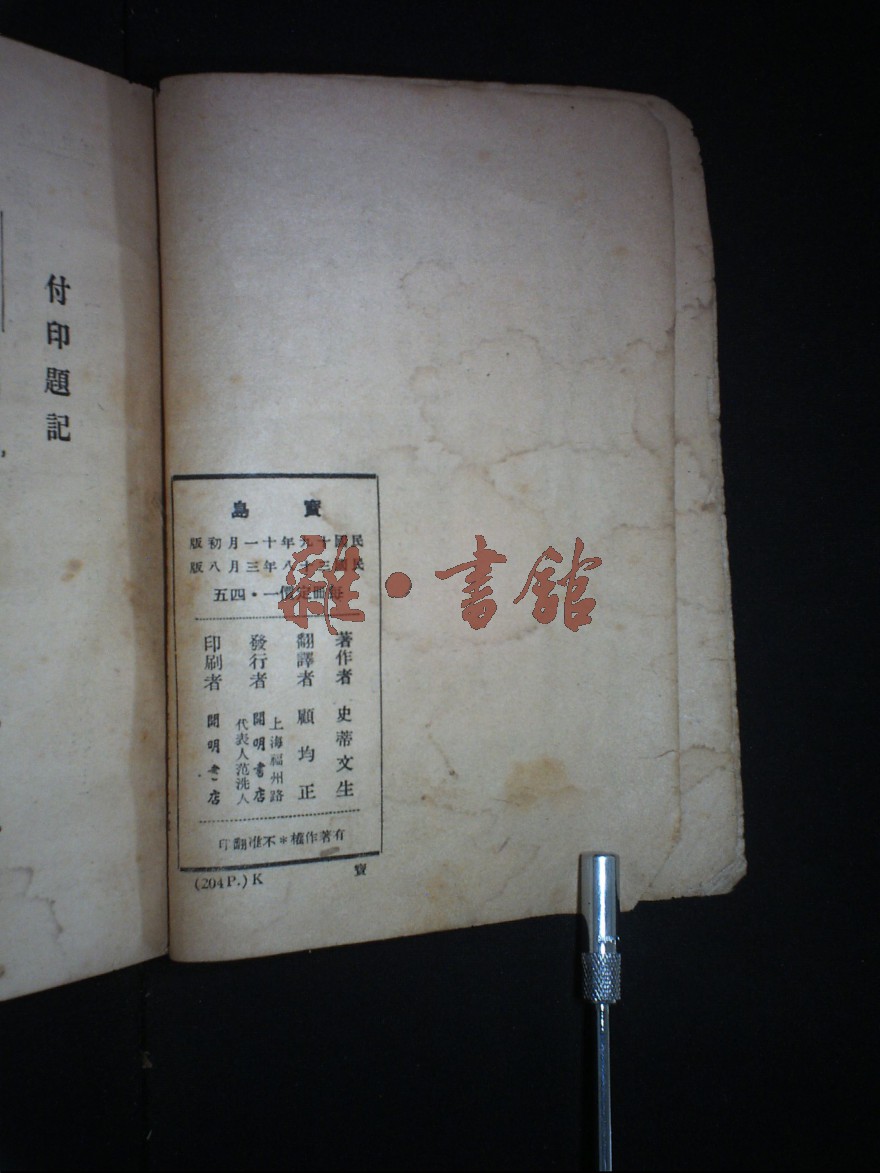 寶島
民國十九年十一月初版
民國三十八年三月八版
每冊定價一·四五
著作者 史蒂文生
翻譯者 顧均正
發行者 上海福州路
開明書店
代表人范洗人
印刷者 開明書店
有著作權＊不准翻印
(204P.) K 寶
付印題記
雜·書館